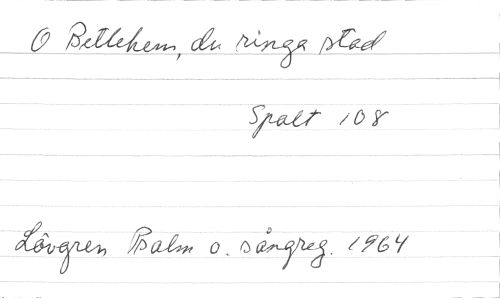 O Betlehem, du ringa stad
Spalt 108
Lövgren Psalm o. sångreg. 1964